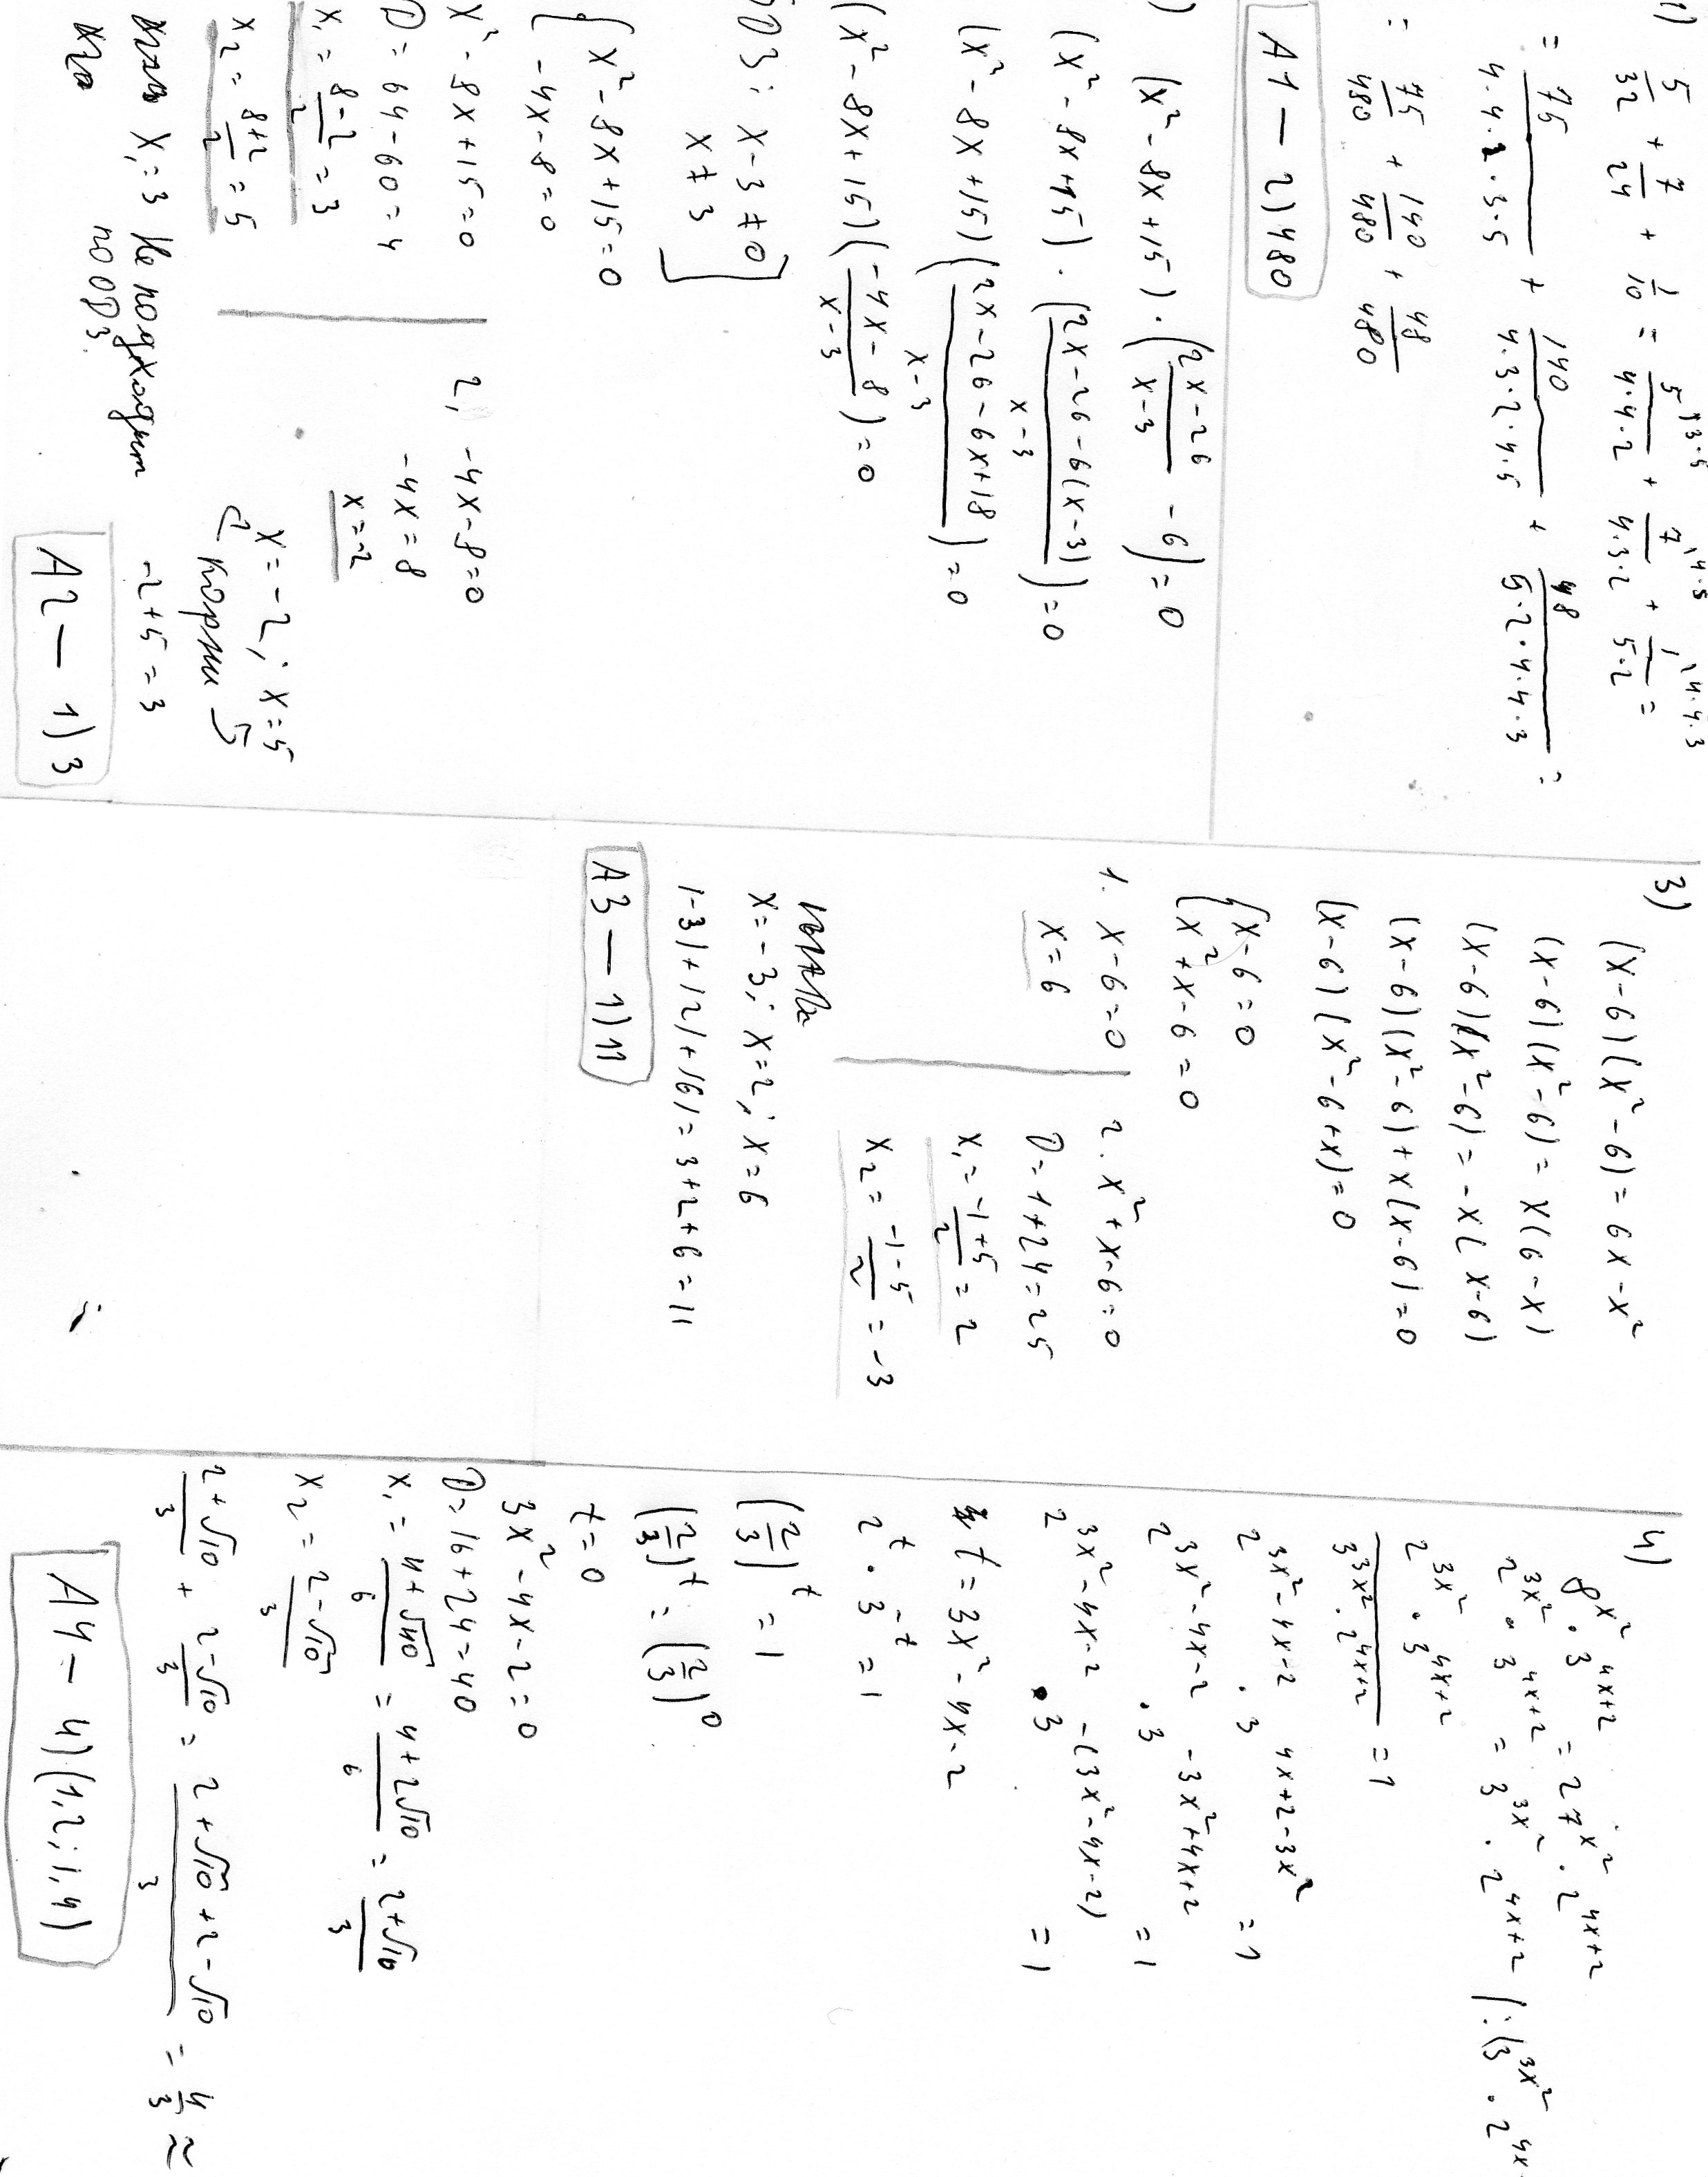 1) 5/32 + 7/24 + 1/10 = 5^{\3·5}/4·4·2 + 7^{\4·5}/4·3·2 + 1^{\4·4·3}/5·2 =
= 75/4·4·2·3·5 + 140/4·3·2·4·5 + 48/5·2·4·4·3 =
= 75/480 + 140/480 + 48/480
A1 — 2) 480
) (x² - 8x + 15) · (2x-26/x-3 - 6) = 0
(x² - 8x + 15) · (2x-26-6(x-3)/x-3) = 0
(x² - 8x + 15) (2x-26-6x+18/x-3) = 0
(x² - 8x + 15) (-4x-8/x-3) = 0
ОДЗ: x-3 ≠ 0
x ≠ 3
x² - 8x + 15 = 0
-4x - 8 = 0
x² - 8x + 15 = 0
D = 64 - 60 = 4
x₁ = 8-2/2 = 3
x₂ = 8+2/2 = 5
x₁ = 3 Не подходит
по ОДЗ.
2, -4x-8=0
-4x = 8
x = -2
x = -2; x = 5
корни
-2+5 = 3
A2 — 1) 3
3)
(x-6)(x²-6) = 6x-x²
(x-6)(x²-6) = x(6-x)
(x-6)(x²-6) = -x(x-6)
(x-6)(x²-6)+x(x-6)=0
(x-6)(x²-6+x)=0
x-6=0
x²+x-6=0
1. x-6=0
x=6
2. x²+x-6=0
D=1+24=25
x₁ = -1+5/2 = 2
x₂ = -1-5/2 = -3
x=-3; x=2; x=6
|-3|+|2|+|6|=3+2+6=11
A3 — 1) 11
4)
8^{x²} · 3^{4x+2} = 27^{x²} · 2^{4x+2}
2^{3x²} · 3^{4x+2} = 3^{3x²} · 2^{4x+2} |:(3^{3x²} · 2^{4x
2^{3x²} · 3^{4x+2}/3^{3x²} · 2^{4x+2} = 1
2^{3x²-4x-2} · 3^{4x+2-3x²} = 1
2^{3x²-4x-2} · 3^{-3x²+4x+2} = 1
2^{3x²-4x-2} · 3^{-(3x²-4x-2)} = 1
t = 3x²-4x-2
2^{t} · 3^{-t} = 1
(2/3)^{t} = 1
(2/3)^{t} = (2/3)^{0}
t = 0
3x²-4x-2=0
D=16+24=40
x₁ = 4+√40/6 = 4+2√10/6 = 2+√10/3
x₂ = 2-√10/3
2+√10/3 + 2-√10/3 = 2+√10+2-√10/3 = 4/3 ≈
A4 — 4) (1,2; 1,4)